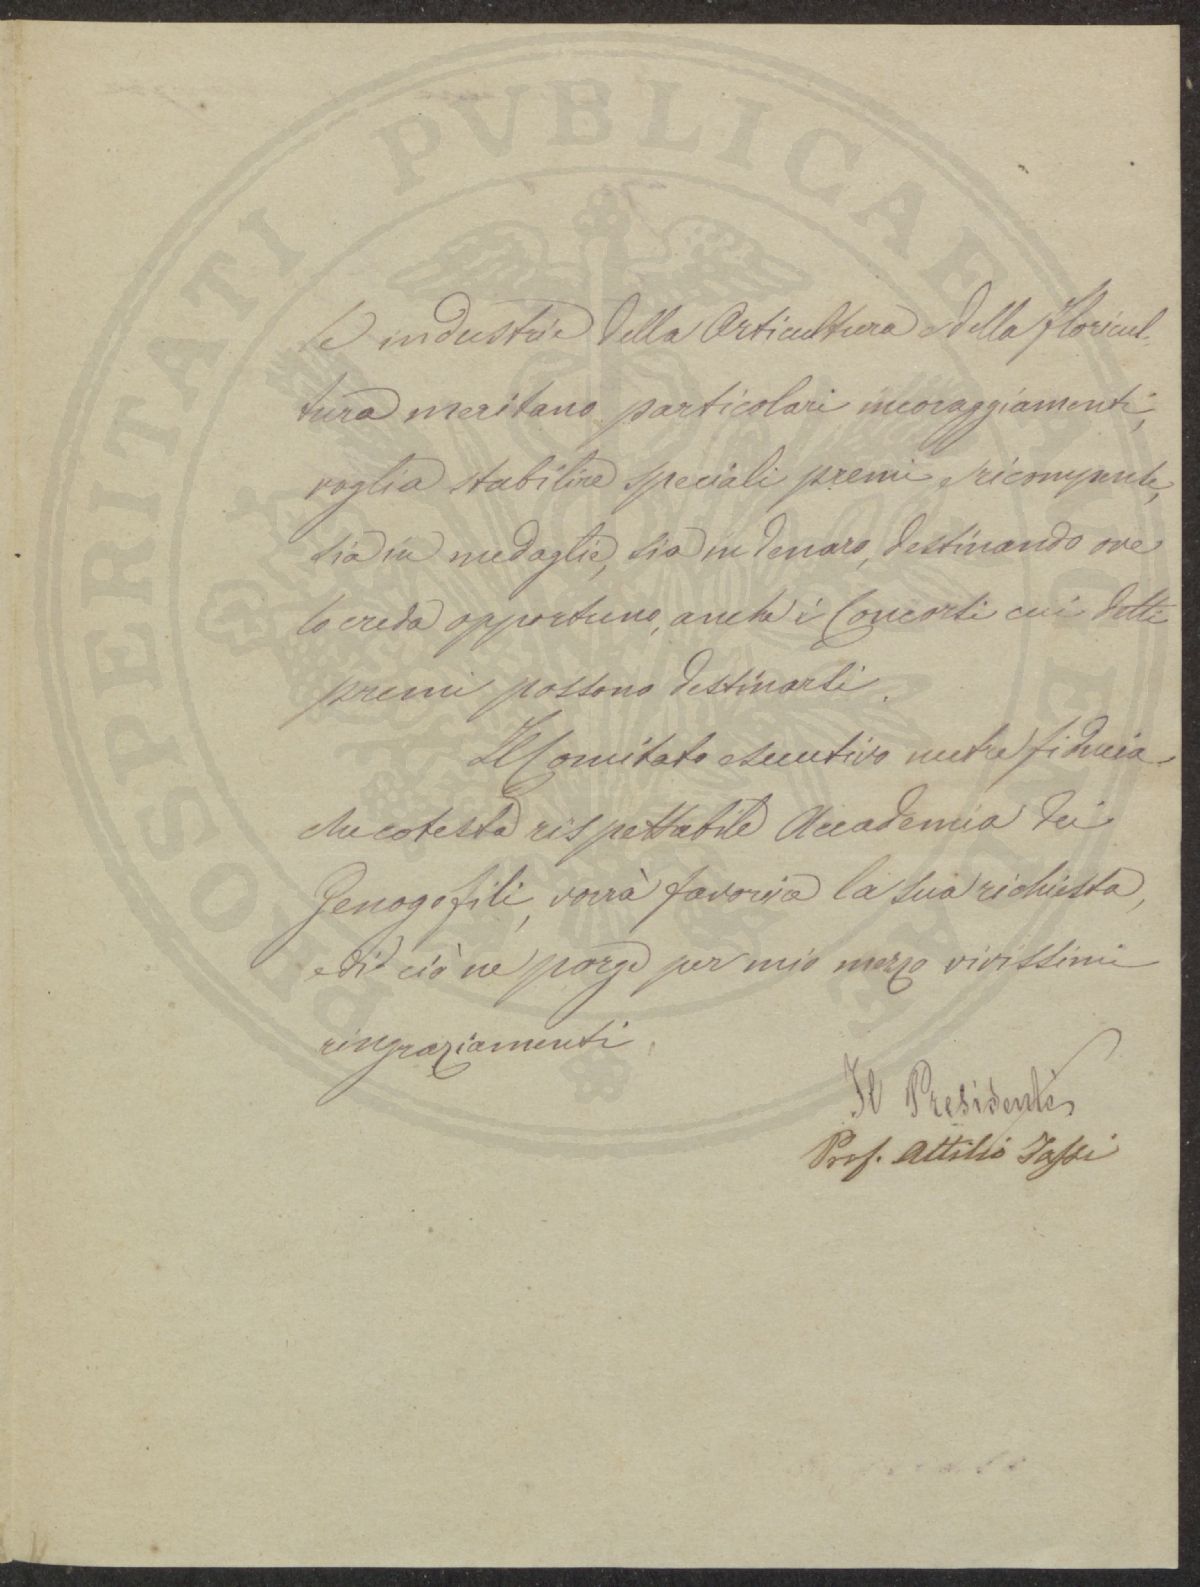 PROSPERITATI PVBLICAE AVGENDAE
le industrie della Orticultura e della Floricul-
tura meritano particolari incoraggiamenti,
voglia stabilire speciali premi e ricompense,
sia in medaglie, sia in denaro, destinando ove
lo creda opportuno, anche i Concorsi cui detti
premi possono destinarsi.
Il Comitato esecutivo nutre fiducia
che cotesta rispettabile Accademia dei
Genogofili, vorrà favorire la sua richiesta,
e di ciò ne porge per mio mezzo vivissimi
ringraziamenti
Il Presidente
Prof. Attilio Tassi